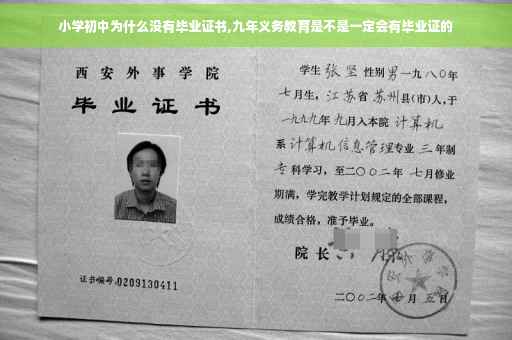 小学初中为什么没有毕业证书,九年义务教育是不是一定会有毕业证的
西安外事学院
毕业证书
证书编号:0209130411
学生 张坚 性别 男 一九八〇年
七月生, 江苏省 苏州县(市)人,于
一九九九年 九月入本院 计算机
系 计算机信息管理专业 三 年制
专科学习,至二〇〇二年 七月修业
期满,学完教学计划规定的全部课程,
成绩合格,准予毕业。
院长
二〇〇二年 月 五日